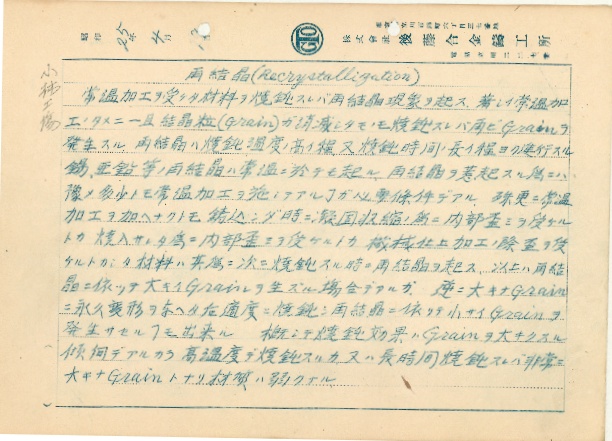 株式會社 後藤合金鑄工所
昭和 25年 4月
再結晶(Recrystallization)
常温加工ヲ受ケタ材料ヲ焼鈍スレバ再結晶現象ヲ起ス、著シイ常温加
工ノタメニ一旦結晶粒(Grain)ガ消滅シタモノモ焼鈍スレバ再ビGrainヲ
発生スル 再結晶ハ焼鈍温度ノ高イ程又焼鈍時間ノ長イ程ヨク進行スル
錫、亜鉛等ノ再結晶ハ常温ニ於テモ起ル、再結晶ヲ惹起スル為ニハ
豫メ多少トモ常温加工ヲ施シテアルコトガ必要條件デアル 殊更ニ常温
加工ヲ加ヘナクトモ鋳込ンダ時ニ凝固収縮ノ為ニ内部歪ミヲ受ケル
トカ 焼入サレタ為ニ内部歪ミヲ受ケルトカ 機械仕上加工ノ際歪ヲ受
ケルトカシタ材料ハ其為ニ次ニ焼鈍スル時ニ再結晶ヲ起ス、以上ハ再結
晶ニ依ッテ大キイGrainヲ生ズル場合デアルガ 逆ニ大キナGrain
ニ永久変形ヲ与ヘタ后適度ニ焼鈍シ再結晶ニ依ッテ小サイGrainヲ
発生サセルコトモ出来ル 概シテ焼鈍効果ハGrainヲ大キクスル
傾向デアルカラ 高温度デ焼鈍スルカ又ハ長時間焼鈍スレバ非常ニ
大キナGrainトナリ材質ハ弱クナル